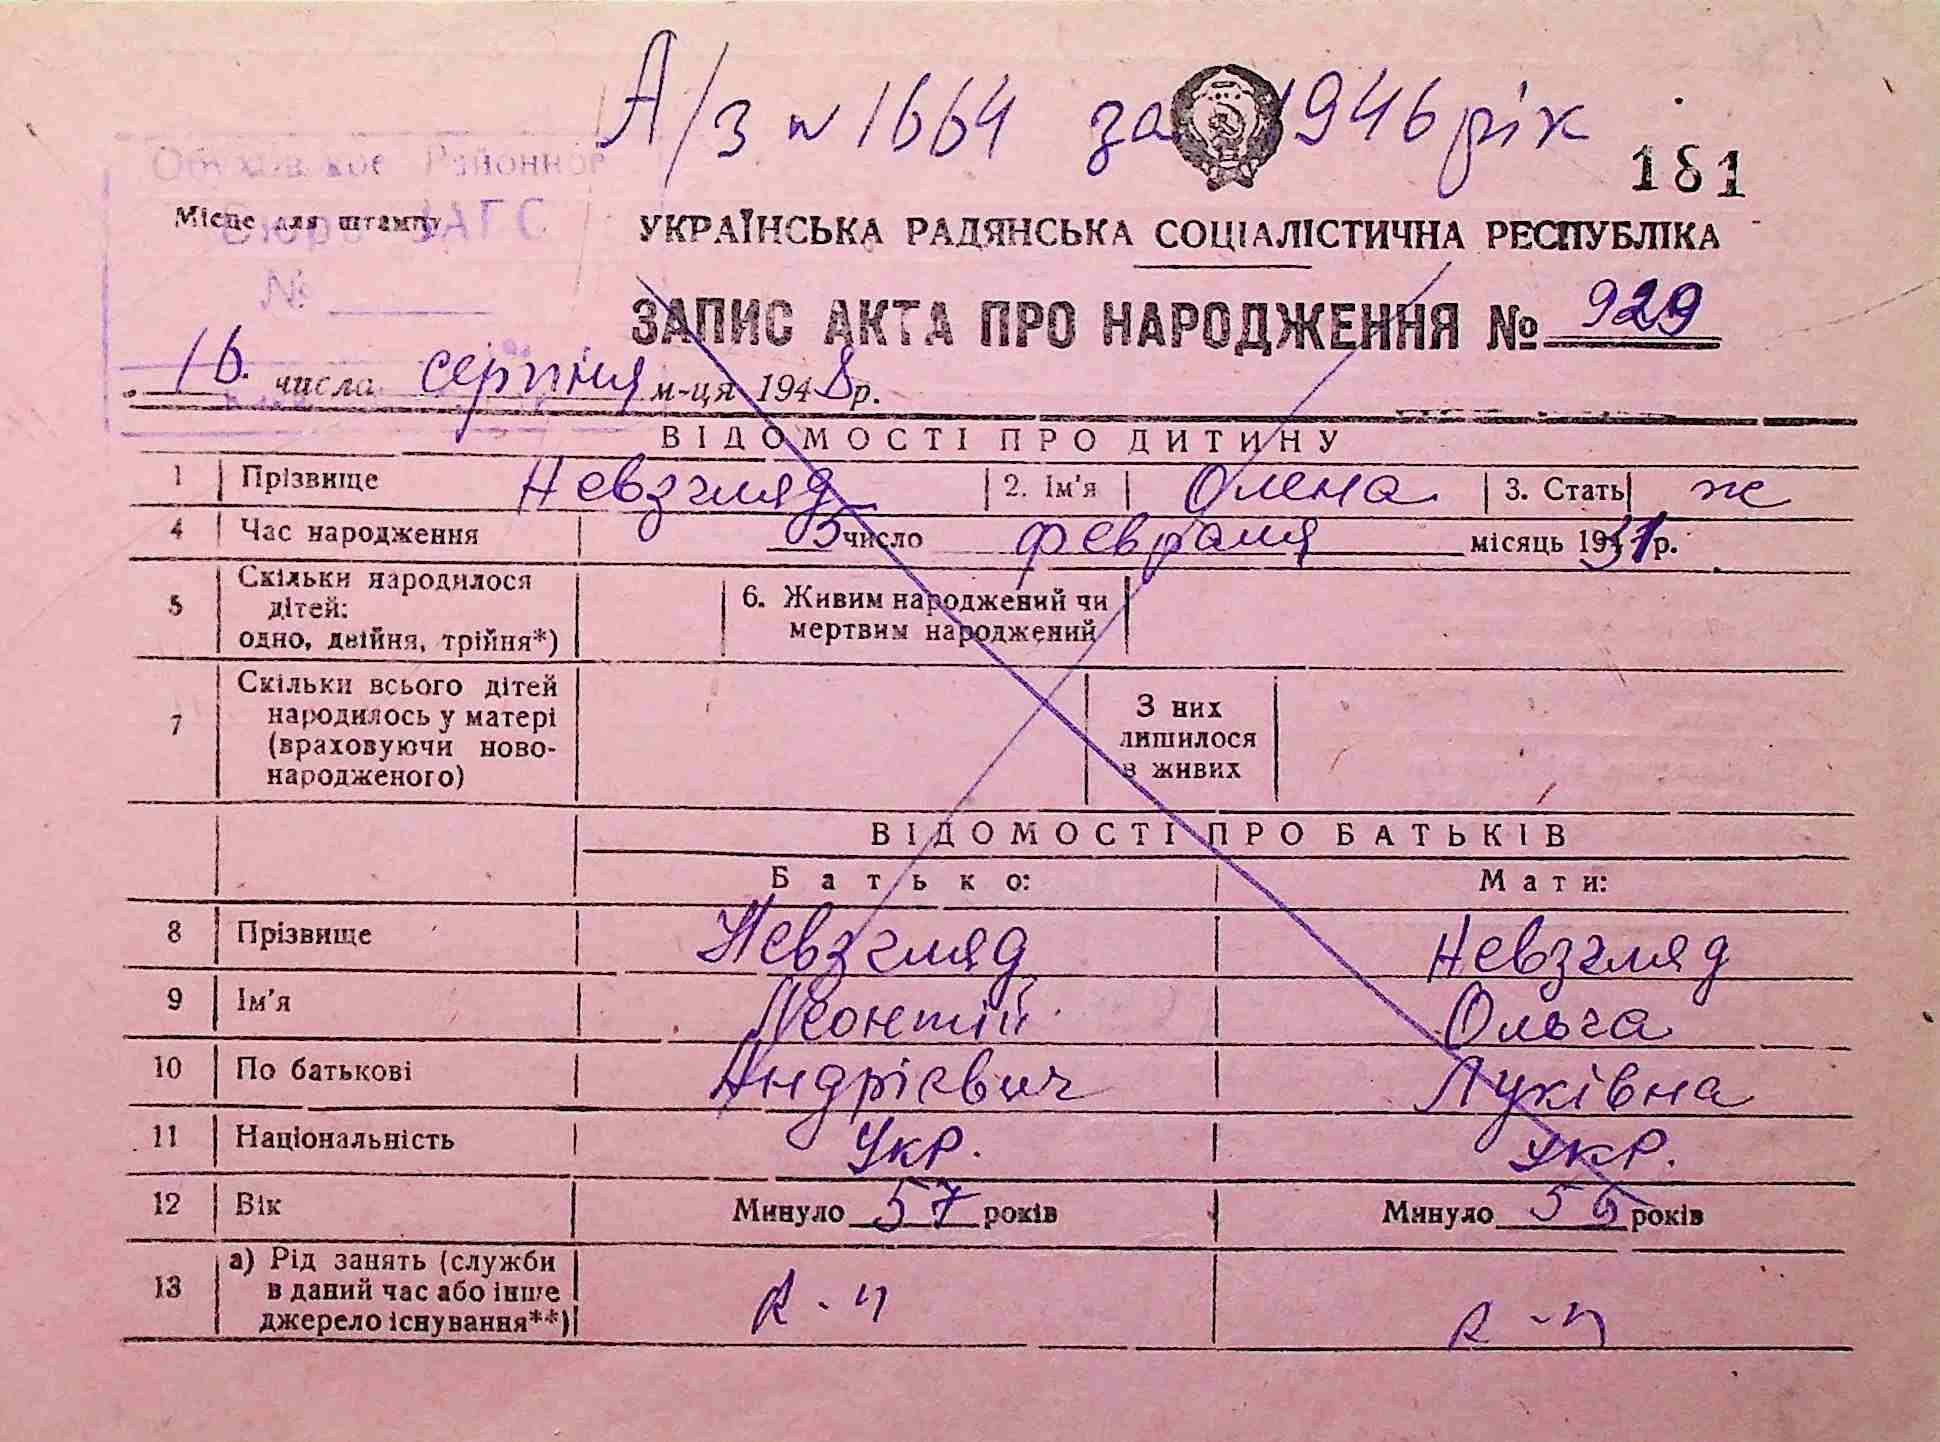 А/з № 1664 за 1946 рік
181
Обуховское Районное
Бюро ЗАГС
№
Місце для штампу
УКРАЇНСЬКА РАДЯНСЬКА СОЦІАЛІСТИЧНА РЕСПУБЛІКА
ЗАПИС АКТА ПРО НАРОДЖЕННЯ № 929
16. числа серпня м-ця 1948 р.
ВІДОМОСТІ ПРО ДИТИНУ
1 Прізвище Невзгляд 2. Ім'я Олена 3. Стать ж
4 Час народження 5 число февраля місяць 1931 р.
5 Скільки народилося дітей: одно, двійня, трійня*) 6. Живим народжений чи мертвим народжений
7 Скільки всього дітей народилось у матері (враховуючи ново-народженого) З них лишилося в живих
ВІДОМОСТІ ПРО БАТЬКІВ
Батько: Мати:
8 Прізвище Невзгляд Невзгляд
9 Ім'я Леонтій Ольга
10 По батькові Андрієвич Луківна
11 Національність Укр. Укр.
12 Вік Минуло 57 років Минуло 55 років
13 а) Рід занять (служби в даний час або інше джерело існування**)